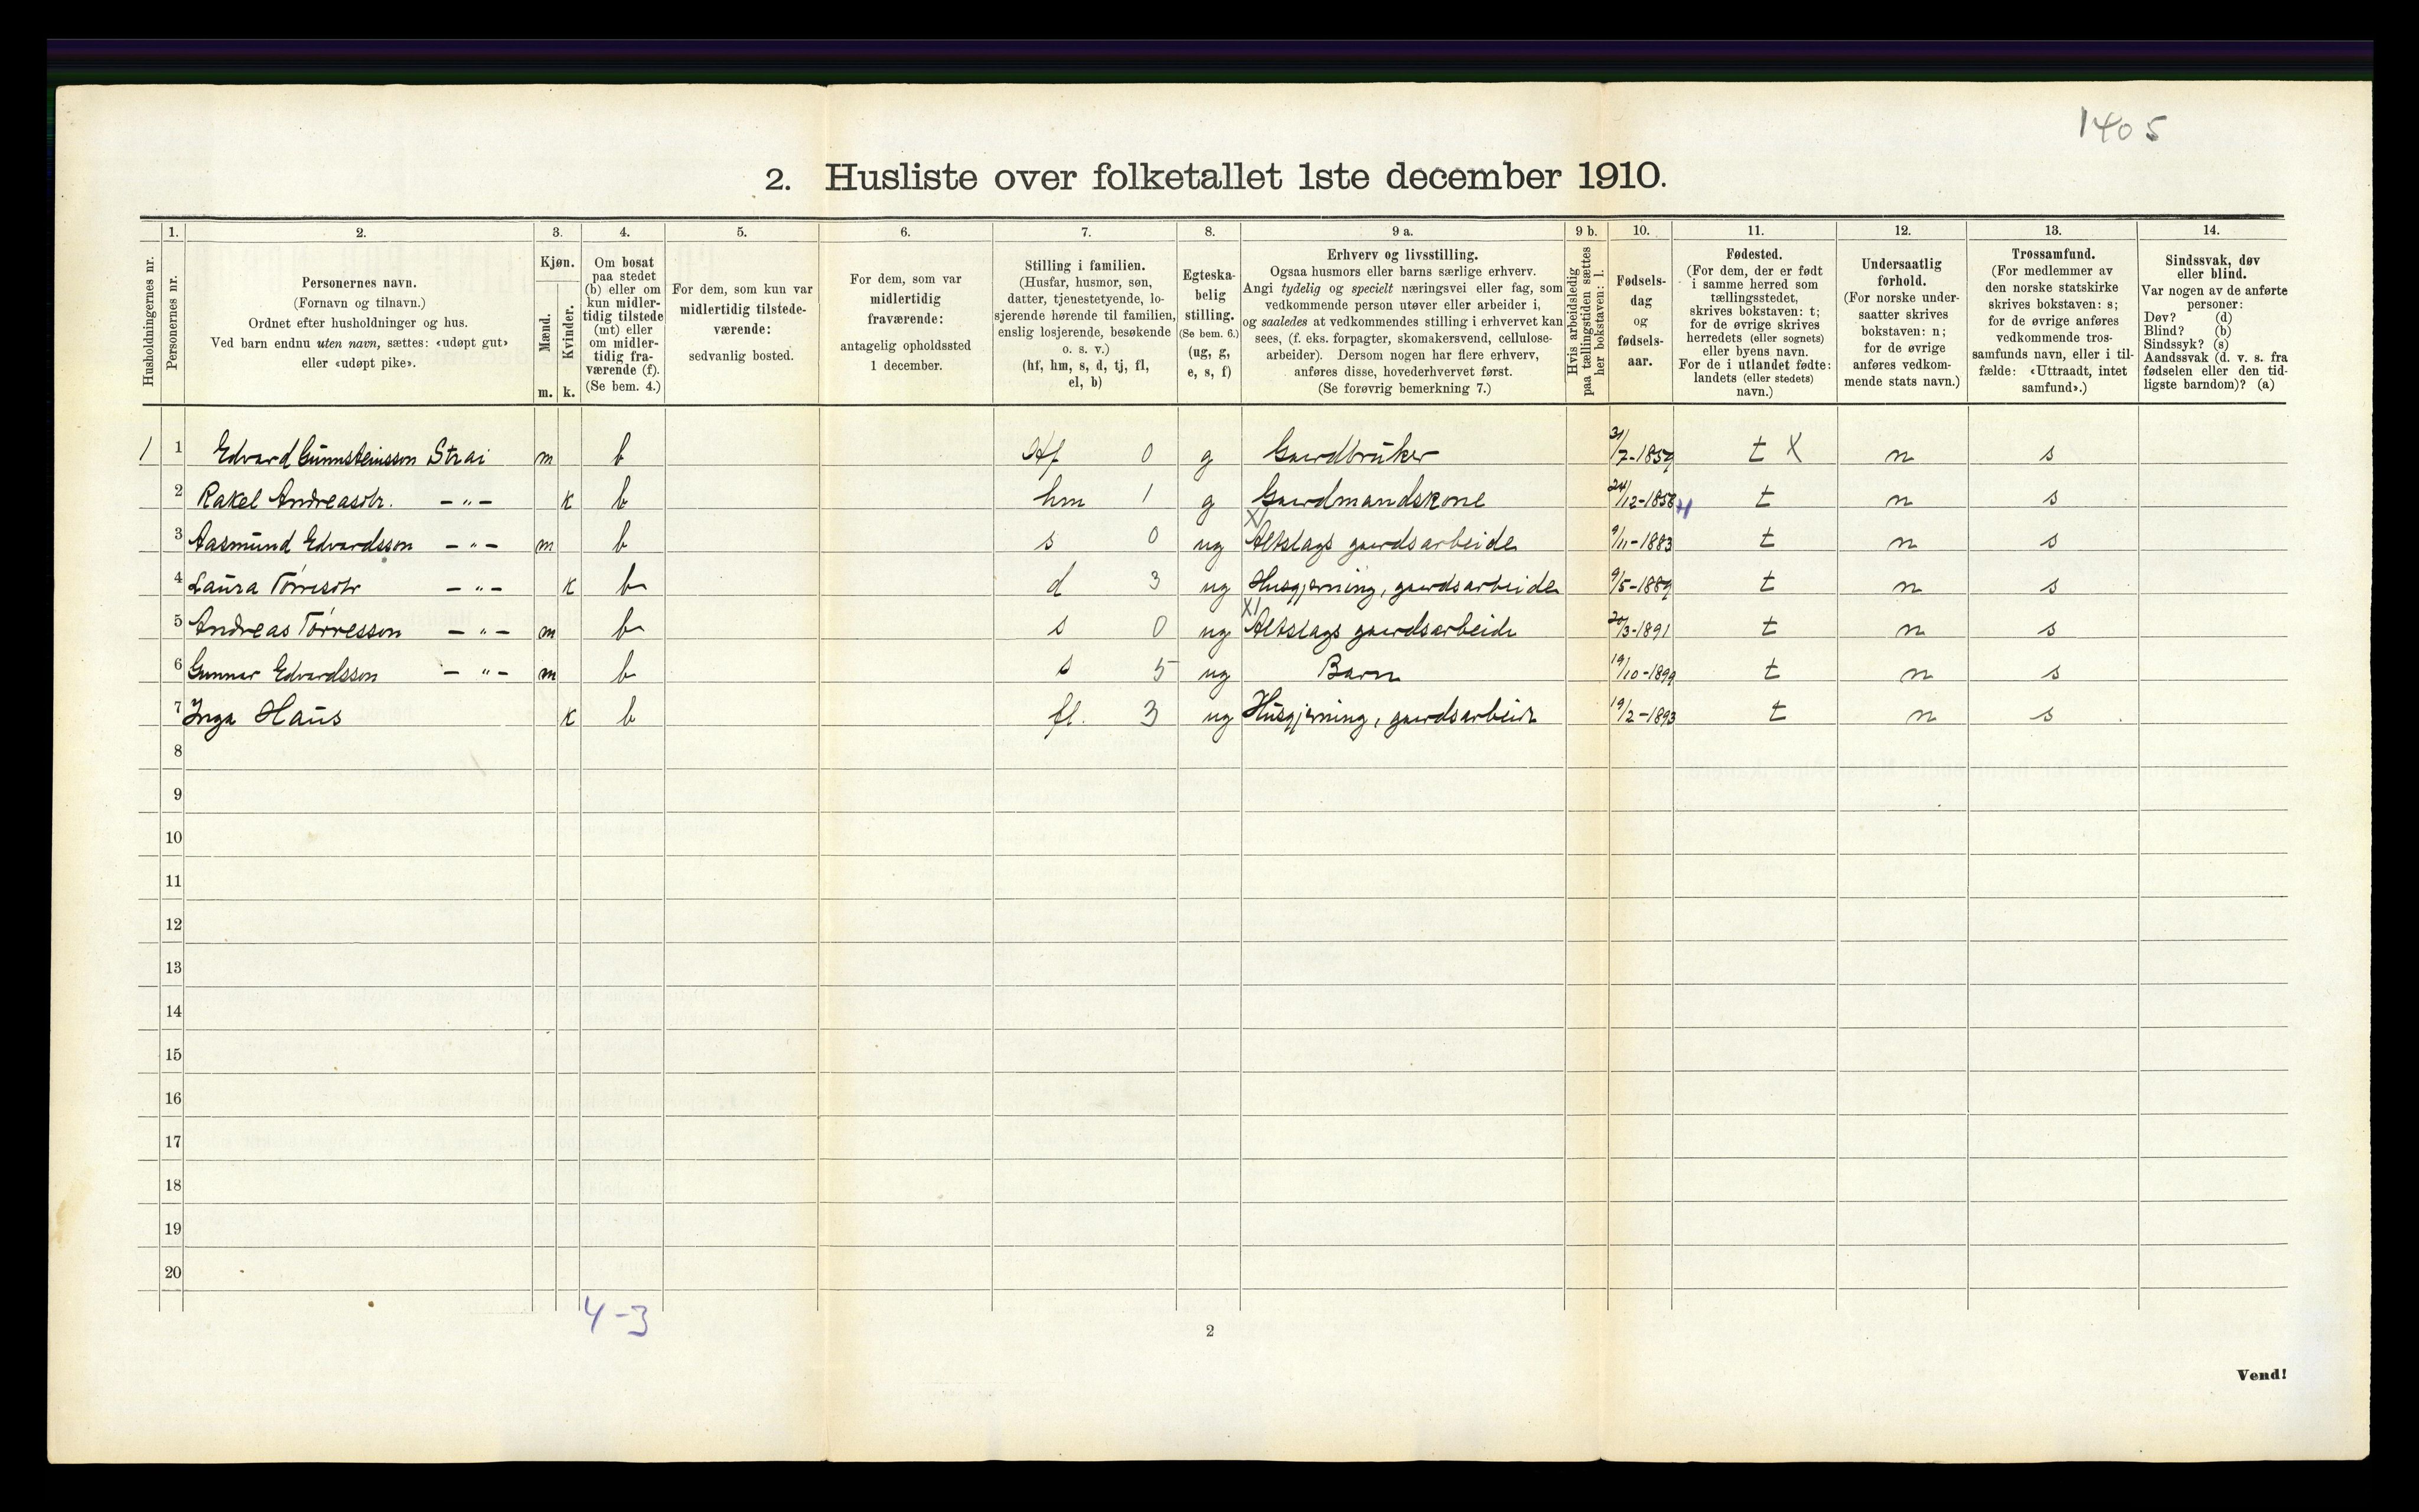 1405
2. Husliste over folketallet 1ste december 1910.
Husholdningernes nr.
1.
Personernes nr.
2.
Personernes navn.
(Fornavn og tilnavn.)
Ordnet efter husholdninger og hus.
Ved barn endnu uten navn, sættes: «udøpt gut»
eller «udøpt pike».
3.
Kjøn.
Mænd.
Kvinder.
m. k.
4.
Om bosat
paa stedet
(b) eller om
kun midler-
tidig tilstede
(mt) eller
om midler-
tidig fra-
værende (f).
(Se bem. 4.)
5.
For dem, som kun var
midlertidig tilstede-
værende:
sedvanlig bosted.
6.
For dem, som var
midlertidig
fraværende:
antagelig opholdssted
1 december.
7.
Stilling i familien.
(Husfar, husmor, søn,
datter, tjenestetyende, lo-
sjerende hørende til familien,
enslig losjerende, besøkende
o. s. v.)
(hf, hm, s, d, tj, fl,
el, b)
8.
Egteska-
belig
stilling.
(Se bem. 6.)
(ug, g,
e, s, f)
9 a.
Erhverv og livsstilling.
Ogsaa husmors eller barns særlige erhverv.
Angi tydelig og specielt næringsvei eller fag, som
vedkommende person utøver eller arbeider i,
og saaledes at vedkommendes stilling i erhvervet kan
sees, (f. eks. forpagter, skomakersvend, cellulose-
arbeider). Dersom nogen har flere erhverv,
anføres disse, hovederhvervet først.
(Se forøvrig bemerkning 7.)
9 b.
Hvis arbeidsledig
paa tællingstiden sættes
her bokstaven: l.
10.
Fødsels-
dag
og
fødsels-
aar.
11.
Fødested.
(For dem, der er født
i samme herred som
tællingsstedet,
skrives bokstaven: t;
for de øvrige skrives
herredets (eller sognets)
eller byens navn.
For de i utlandet fødte:
landets (eller stedets)
navn.)
12.
Undersaatlig
forhold.
(For norske under-
saatter skrives
bokstaven: n;
for de øvrige
anføres vedkom-
mende stats navn.)
13.
Trossamfund.
(For medlemmer av
den norske statskirke
skrives bokstaven: s;
for de øvrige anføres
vedkommende tros-
samfunds navn, eller i til-
fælde: «Uttraadt, intet
samfund».)
14.
Sindssvak, døv
eller blind.
Var nogen av de anførte
personer:
Døv? (d)
Blind? (b)
Sindssyk? (s)
Aandssvak (d. v. s. fra
fødselen eller den tid-
ligste barndom)? (a)
1 1 Edvard Gunnsteinsson Strai m b Hf 0 g Gaardbruker 31/7-1859 t X n s
2 Rakel Andreasdtr. - " - k b hm 1 g Gaardmandskone 24/12-1858 t n s
3 Aasmund Edvardsson - " - m b s 0 ug Altslags gaardsarbeide 9/11-1883 t n s
4 Laura Torresdtr - " - k b d 3 ug Husgjerning, gaardsarbeide 9/5-1889 t n s
5 Andreas Torresson - " - m b s 0 ug Altslags gaardsarbeide 20/3-1891 t n s
6 Gunnar Edvardsson - " - m b s 5 ug Barn 19/10-1899 t n s
7 Inga Haus k b fl. 3 ug Husgjerning, gaardsarbeide 19/2-1893 t n s
8
9
10
11
12
13
14
15
16
17
18
19
20
4-3
2
Vend!